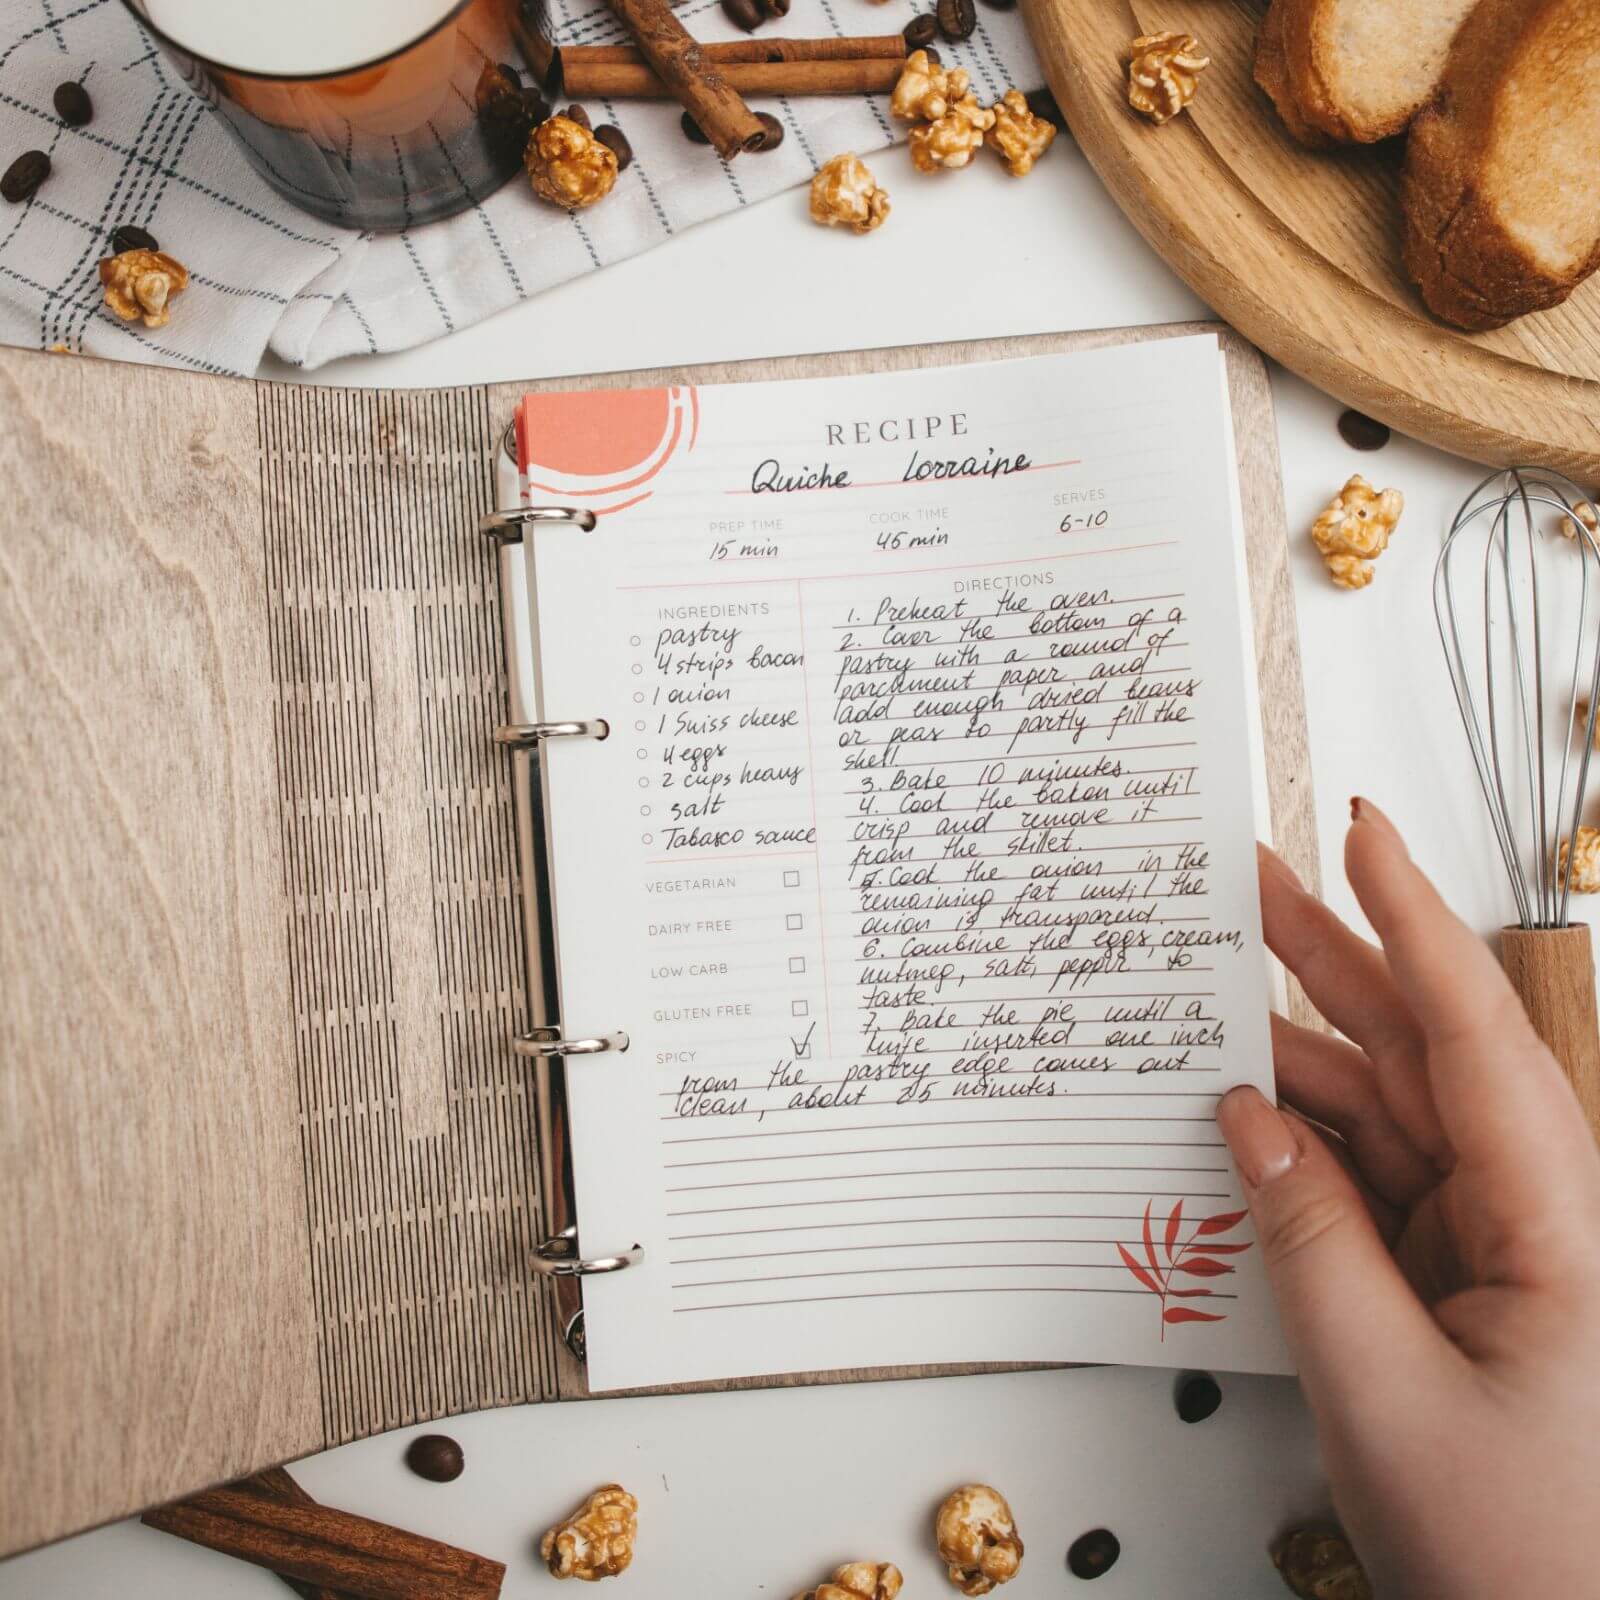 RECIPE
Quiche Lorraine
PREP TIME
15 min
COOK TIME
45 min
SERVES
6-10
INGREDIENTS
pastry
4 strips bacon
1 onion
1 Swiss cheese
4 eggs
2 cups heavy
salt
Tabasco sauce
VEGETARIAN
DAIRY FREE
LOW CARB
GLUTEN FREE
SPICY
DIRECTIONS
1. Preheat the oven.
2. Cover the bottom of a
pastry with a round of
parchment paper and
add enough dried beans
or peas to partly fill the
shell.
3. Bake 10 minutes.
4. Cook the bakon until
crisp and remove it
from the skillet.
5. Cook the onion in the
remaining fat until the
onion is transparent.
6. Combine the eggs, cream,
nutmeg, salt, pepper to
taste.
7. Bake the pie until a
knife inserted one inch
from the pastry edge comes out
clean, about 25 minutes.